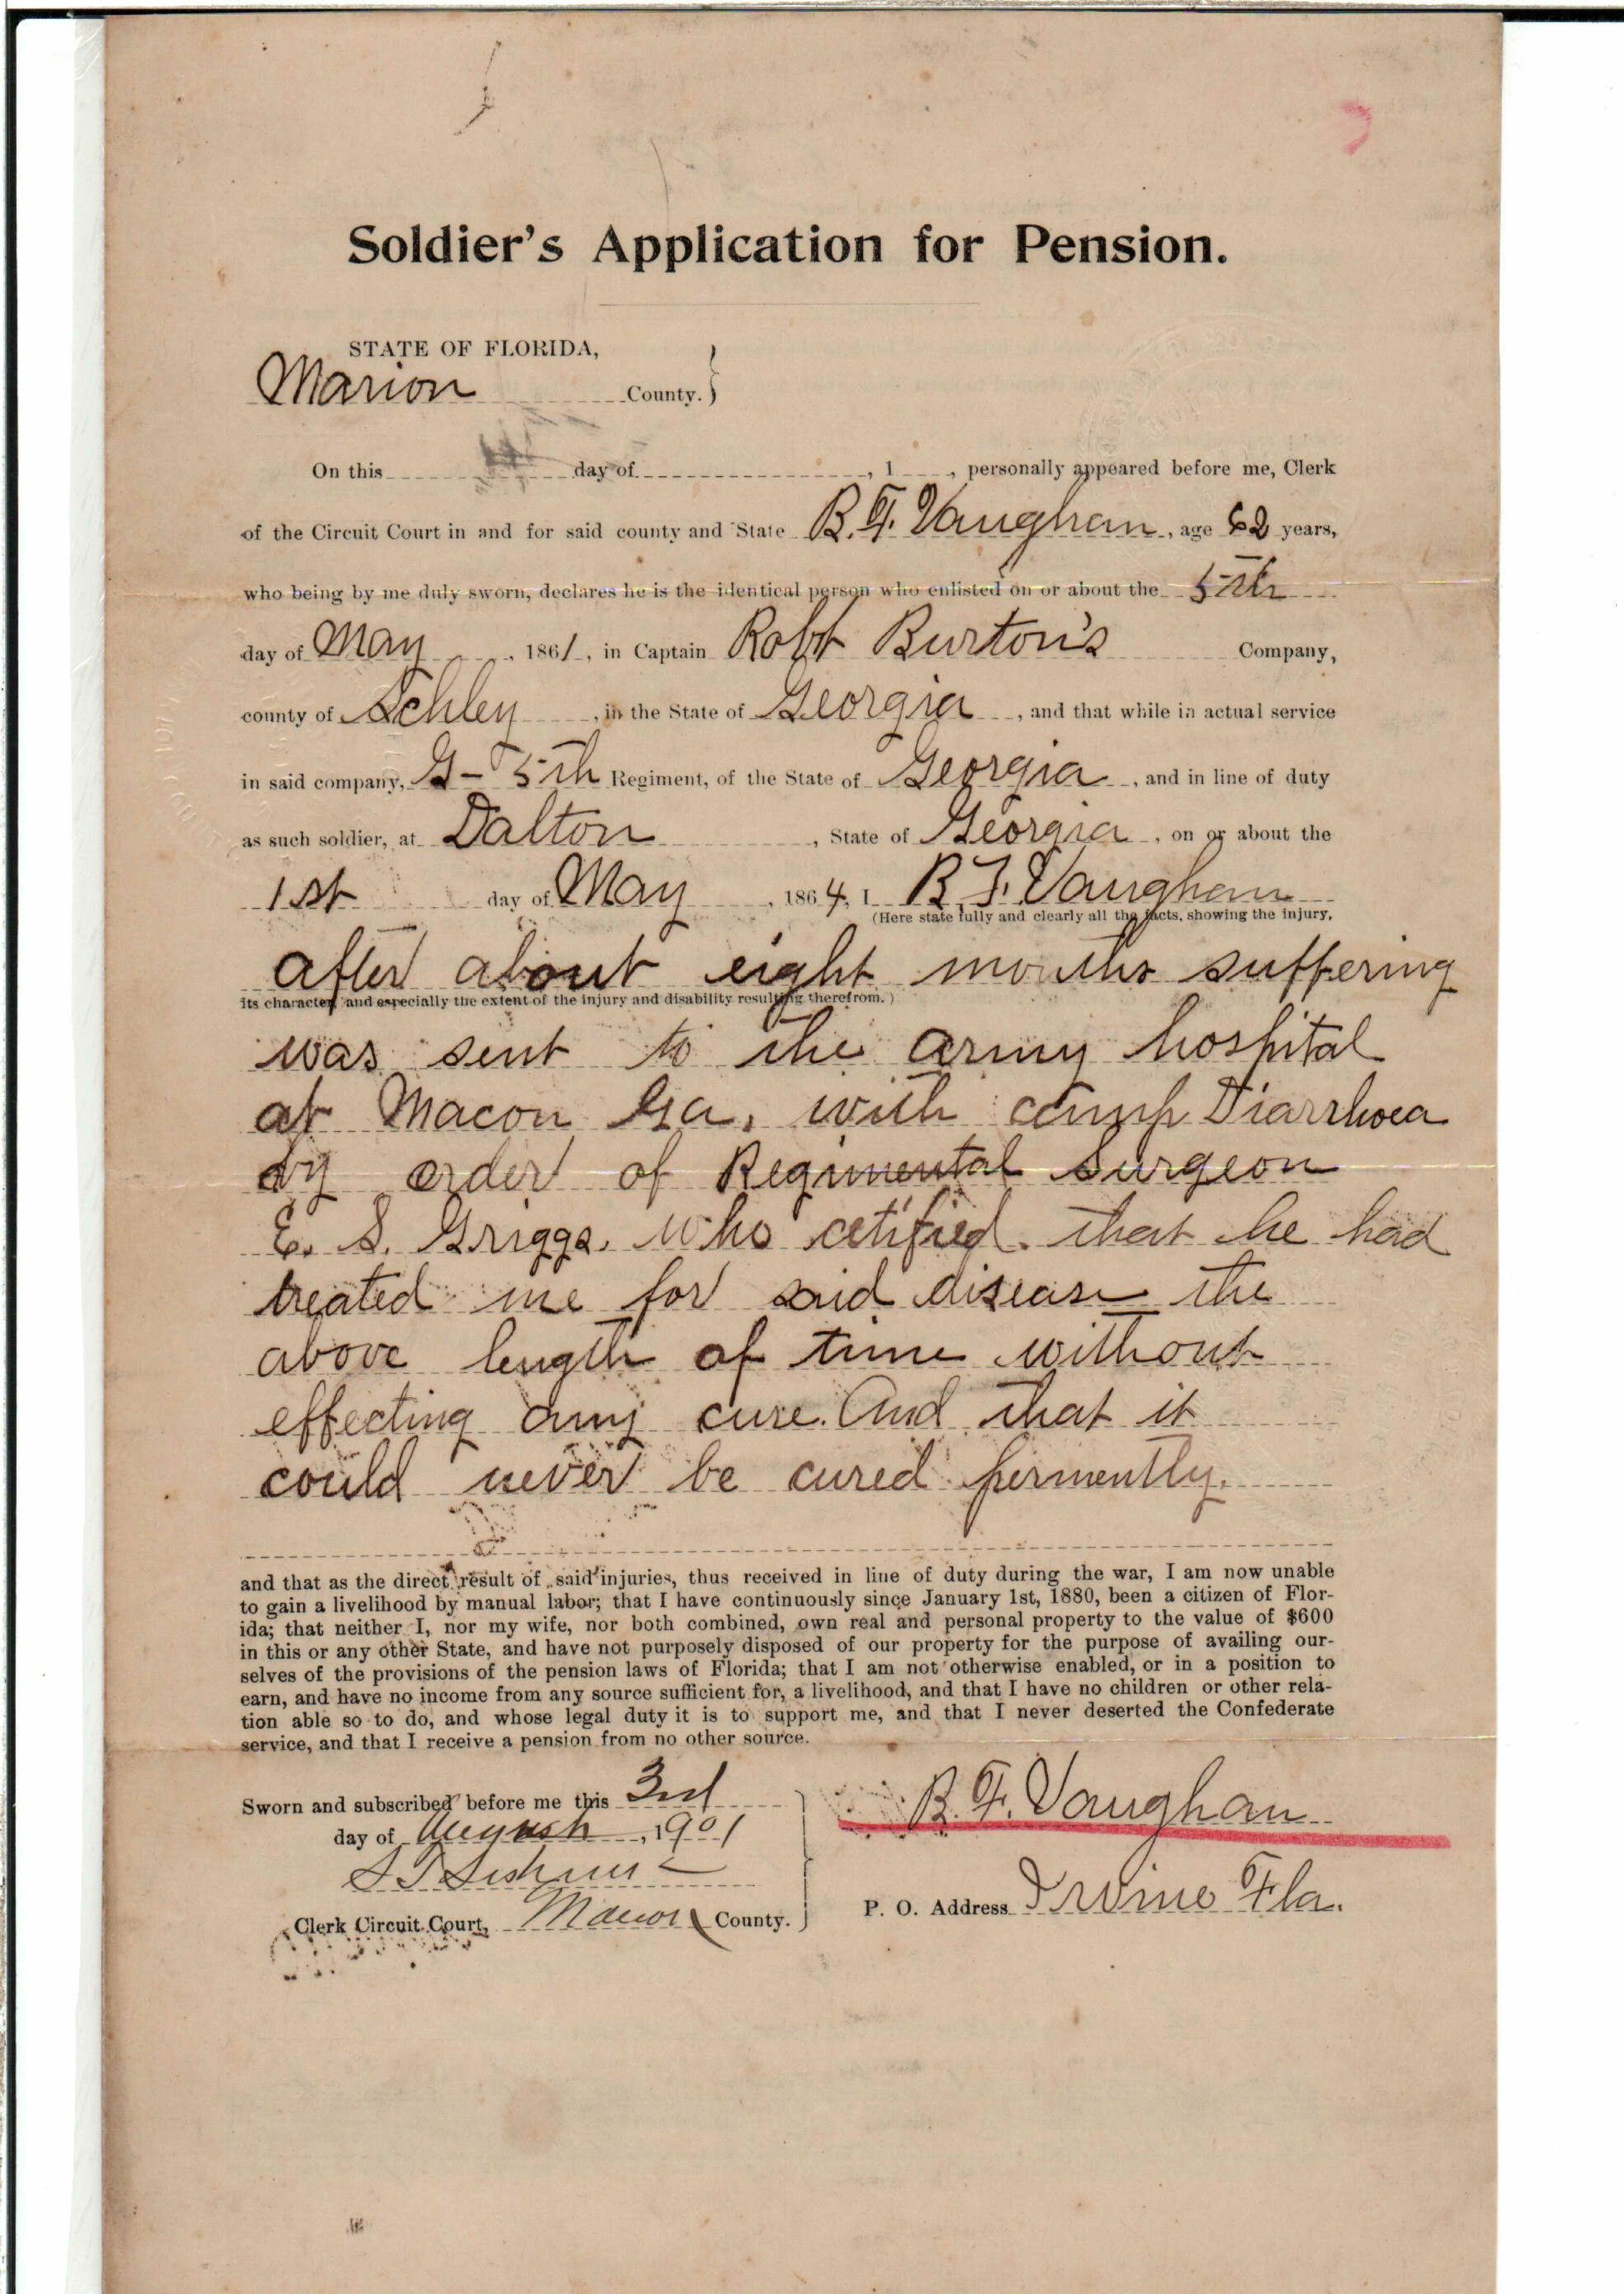 Soldier's Application for Pension.
STATE OF FLORIDA,
Marion County.
On this day of , 1 , personally appeared before me, Clerk
of the Circuit Court in and for said county and State B. F. Vaughan, age 62 years,
who being by me duly sworn, declares he is the identical person who enlisted on or about the 5th
day of May , 1861, in Captain Robt Burton's Company,
county of Schley , in the State of Georgia , and that while in actual service
in said company, G- 5th Regiment, of the State of Georgia , and in line of duty
as such soldier, at Dalton , State of Georgia , on or about the
1st day of May , 1864, I B. F. Vaughan
(Here state fully and clearly all the facts, showing the injury,
after about eight months suffering
its character, and especially the extent of the injury and disability resulting therefrom.)
was sent to the army hospital
at Macon Ga. with camp Diarrhoea
by order of Regimental Surgeon
E. S. Griggs. who cetified that he had
treated me for said disease the
above length of time without
effecting any cure. And that it
could never be cured permently.
and that as the direct result of said injuries, thus received in line of duty during the war, I am now unable
to gain a livelihood by manual labor; that I have continuously since January 1st, 1880, been a citizen of Flor-
ida; that neither I, nor my wife, nor both combined, own real and personal property to the value of $600
in this or any other State, and have not purposely disposed of our property for the purpose of availing our-
selves of the provisions of the pension laws of Florida; that I am not otherwise enabled, or in a position to
earn, and have no income from any source sufficient for, a livelihood, and that I have no children or other rela-
tion able so to do, and whose legal duty it is to support me, and that I never deserted the Confederate
service, and that I receive a pension from no other source.
Sworn and subscribed before me this 3rd
day of August , 1901
Clerk Circuit Court, Marion County.
B. F. Vaughan
P. O. Address Irvine Fla.